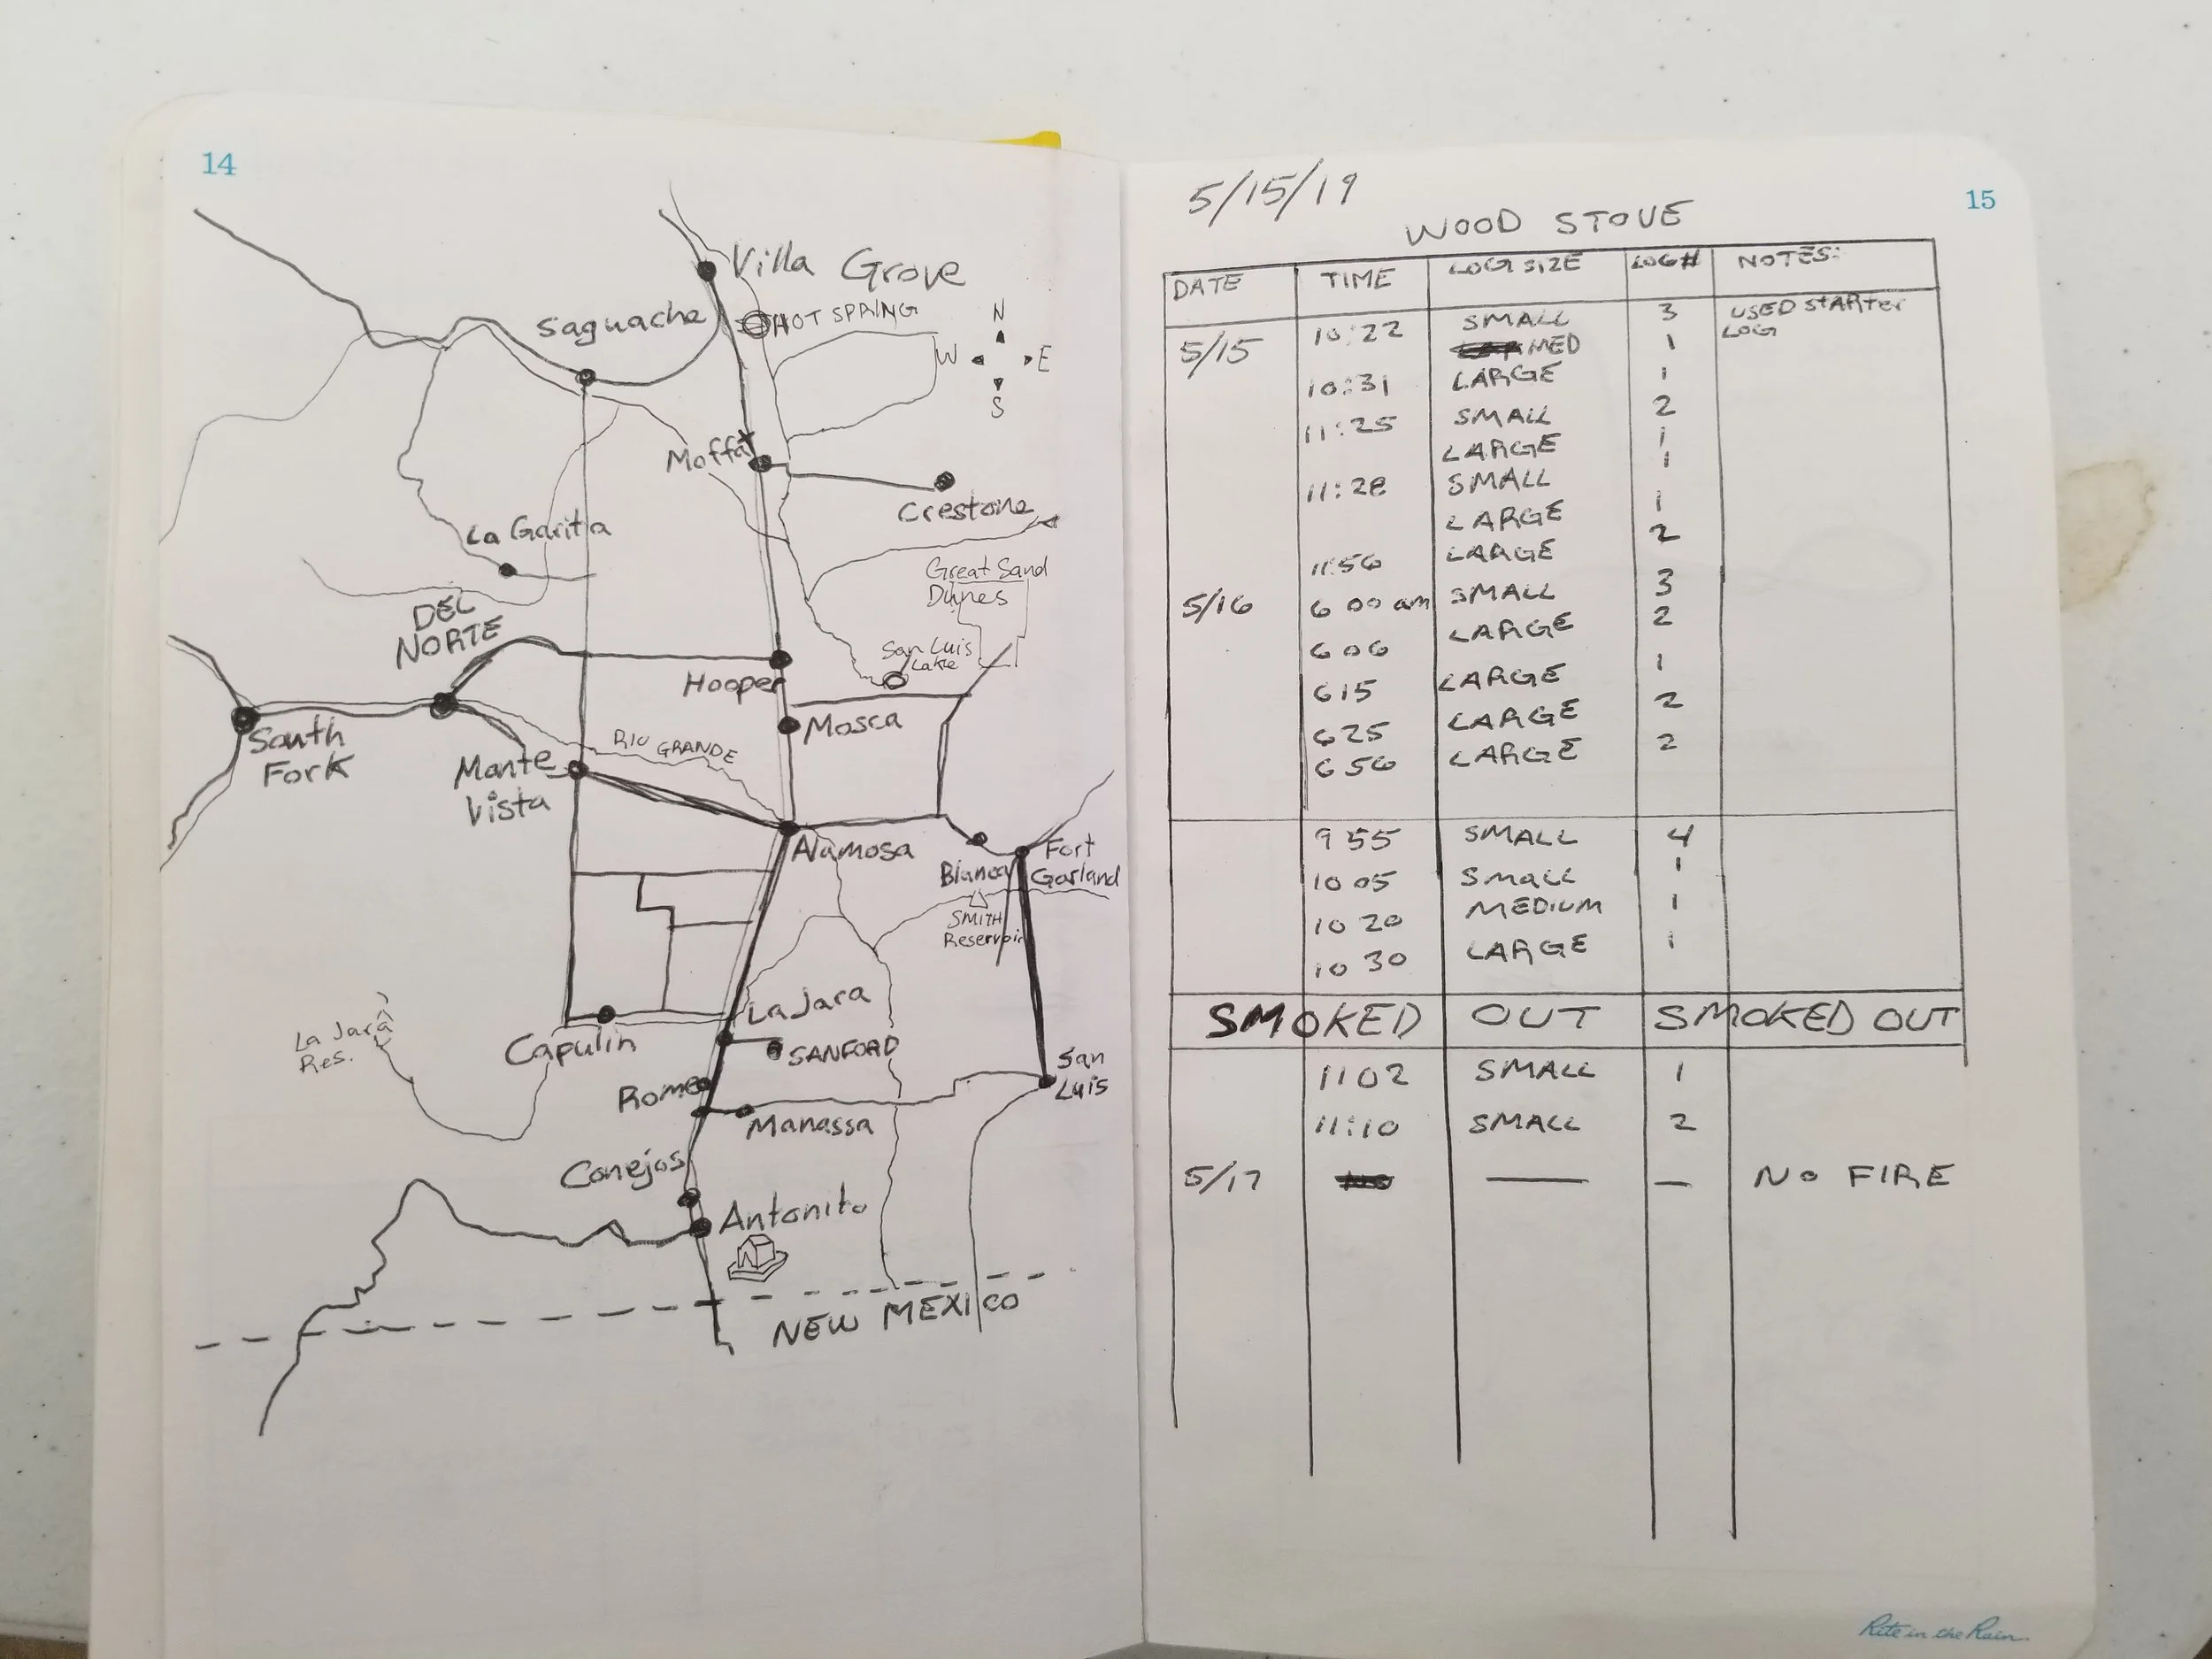 14
Villa Grove
HOT SPRING
Saguache
N
W E
S
Moffat
Crestone
La Garita
Great Sand
Dunes
DEL
NORTE
San Luis
Lake
Hooper
Mosca
South
Fork
RIO GRANDE
Monte
Vista
Alamosa
Blanca
Fort
Garland
SMITH
Reservoir
La Jara
La Jara
Res.
Capulin
SANFORD
Romeo
San
Luis
Manassa
Conejos
Antonito
NEW MEXICO
15
5/15/19
WOOD STOVE
DATE TIME LOG SIZE LOG# NOTES:
5/15 10:22 SMALL 3 USED StARter
LOG
MED 1
10:31 LARGE 1
11:25 SMALL 2
LARGE 1
11:28 SMALL 1
LARGE 1
11:56 LARGE 2
5/16 6 00 am SMALL 3
6 06 LARGE 2
6 15 LARGE 1
6 25 LARGE 2
6 56 LARGE 2
9 55 SMALL 4
10 05 SMALL 1
10 20 MEDIUM 1
10 30 LARGE 1
SMOKED OUT SMOKED OUT
11 02 SMALL 1
11:10 SMALL 2
5/17 — — NO FIRE
Rite in the Rain